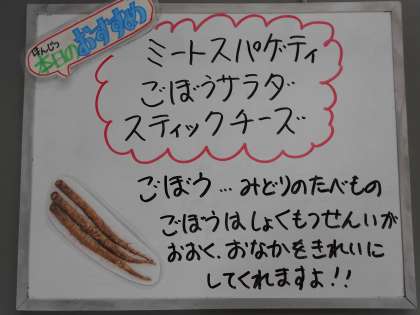 ほんじつ
本日のおすすめ
ミートスパゲティ
ごぼうサラダ
スティックチーズ
ごぼう…みどりのたべもの
ごぼうはしょくもつせんいが
おおく、おなかをきれいに
してくれますよ!!